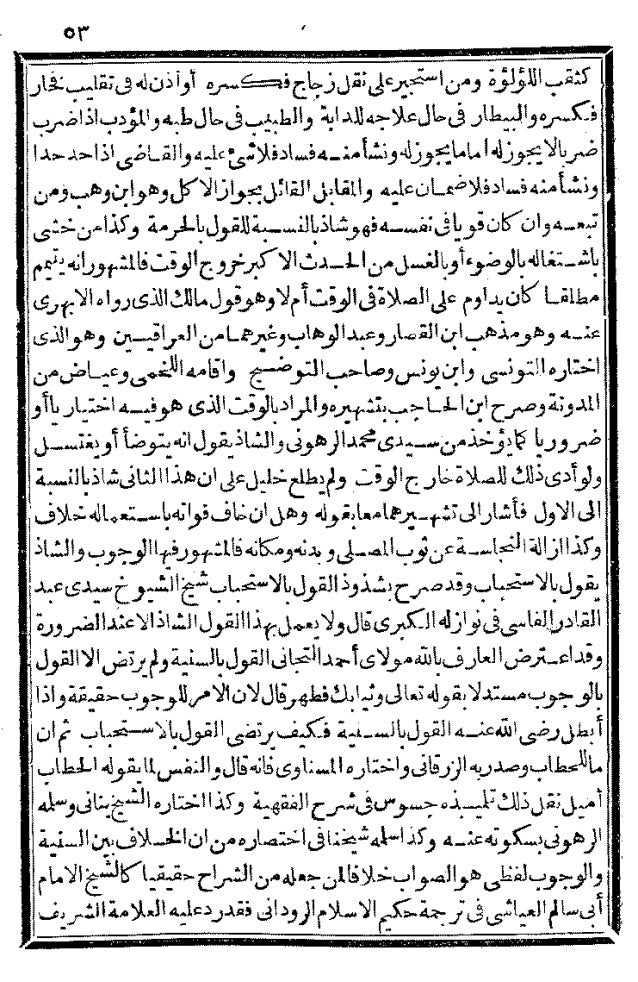 ٥٣
كثقب اللؤلؤة ومن استجير على نقل زجاج فكسره أو أذن له فى تقليب فخار
فكسره والبيطار فى حال علاجه للدابة والطبيب فى حال طبه والمؤدب اذا ضرب
ضربا لا يجوز له اما ما يجوز له ونشأ منه فساد فلا شئ عليه والقاضى اذا حد حدا
ونشأ منه فساد فلا ضمان عليه والمقابل القائل بجواز الا كل وهو ابن وهب ومن
تبعه وان كان قويا فى نفسه فهو شاذ بالنسبة للقول بالحرمة وكذا من خشى
باشتغاله بالوضوء أو بالغسل من الحدث الاكبر خروج الوقت فالمشهور انه يتيمم
مطلقا كان يداوم على الصلاة فى الوقت أم لا وهو قول مالك الذى رواه الابهرى
عنه وهو مذهب ابن القصار وعبد الوهاب وغيرهما من العراقيين وهو الذى
اختاره التونسى وابن يونس وصاحب التوضيح واقامه اللخمى وعياض من
المدونة وصرح ابن الحاجب بتشهيره والمراد بالوقت الذى هو فيه اختياريا أو
ضروريا كما يؤخذ من سيدى محمد الرهونى والشاذ يقول انه يتوضأ أو يغتسل
ولو أدى ذلك للصلاة خارج الوقت ولم يطلع خليل على ان هذا الثانى شاذ بالنسبة
الى الاول فأشار الى تشهيرهما معا بقوله وهل ان خاف فواته باستعماله خلاف
وكذا ازالة النجاسة عن ثوب المصلى وبدنه ومكانه فالمشهور فيها الوجوب والشاذ
يقول بالاستحباب وقد صرح بشذوذ القول بالاستحباب شيخ الشيوخ سيدى عبد
القادر الفاسى فى نوازله الكبرى قال ولا يعمل بهذا القول الشاذ الا عند الضرورة
وقد اعترض العارف بالله مولاى أحمد التجانى القول بالسنية ولم يرتض الا القول
بالوجوب مستدلا بقوله تعالى وثيابك فطهر قال لان الامر للوجوب حقيقة واذا
أبطل رضى الله عنه القول بالسنية فكيف يرتضى القول بالاستحباب ثم ان
ما للحطاب وصدر به الزرقانى واختاره المسناوى فانه قال والنفس لما يقوله الحطاب
أميل نقل ذلك تلميذه جسوس فى شرح الفقهية وكذا اختاره الشيخ بنانى وسلمه
الرهونى بسكوته عنه وكذا سلمه شيخنا فى اختصاره من ان الخلاف بين السنية
والوجوب لفظى هو الصواب خلافا لمن جعله من الشراح حقيقيا كالشيخ الامام
أبى سالم العياشى فى ترجمة حكيم الاسلام الرودانى فقد رد عليه العلامة الشريف